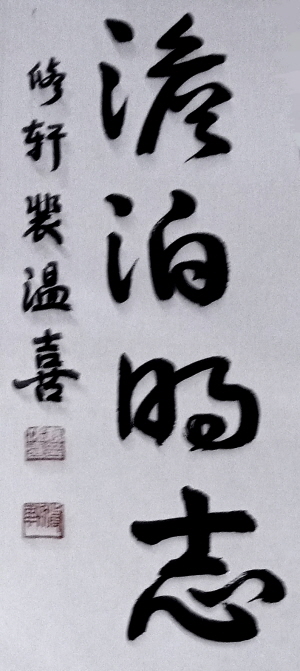 澹泊明志
修轩裴温喜